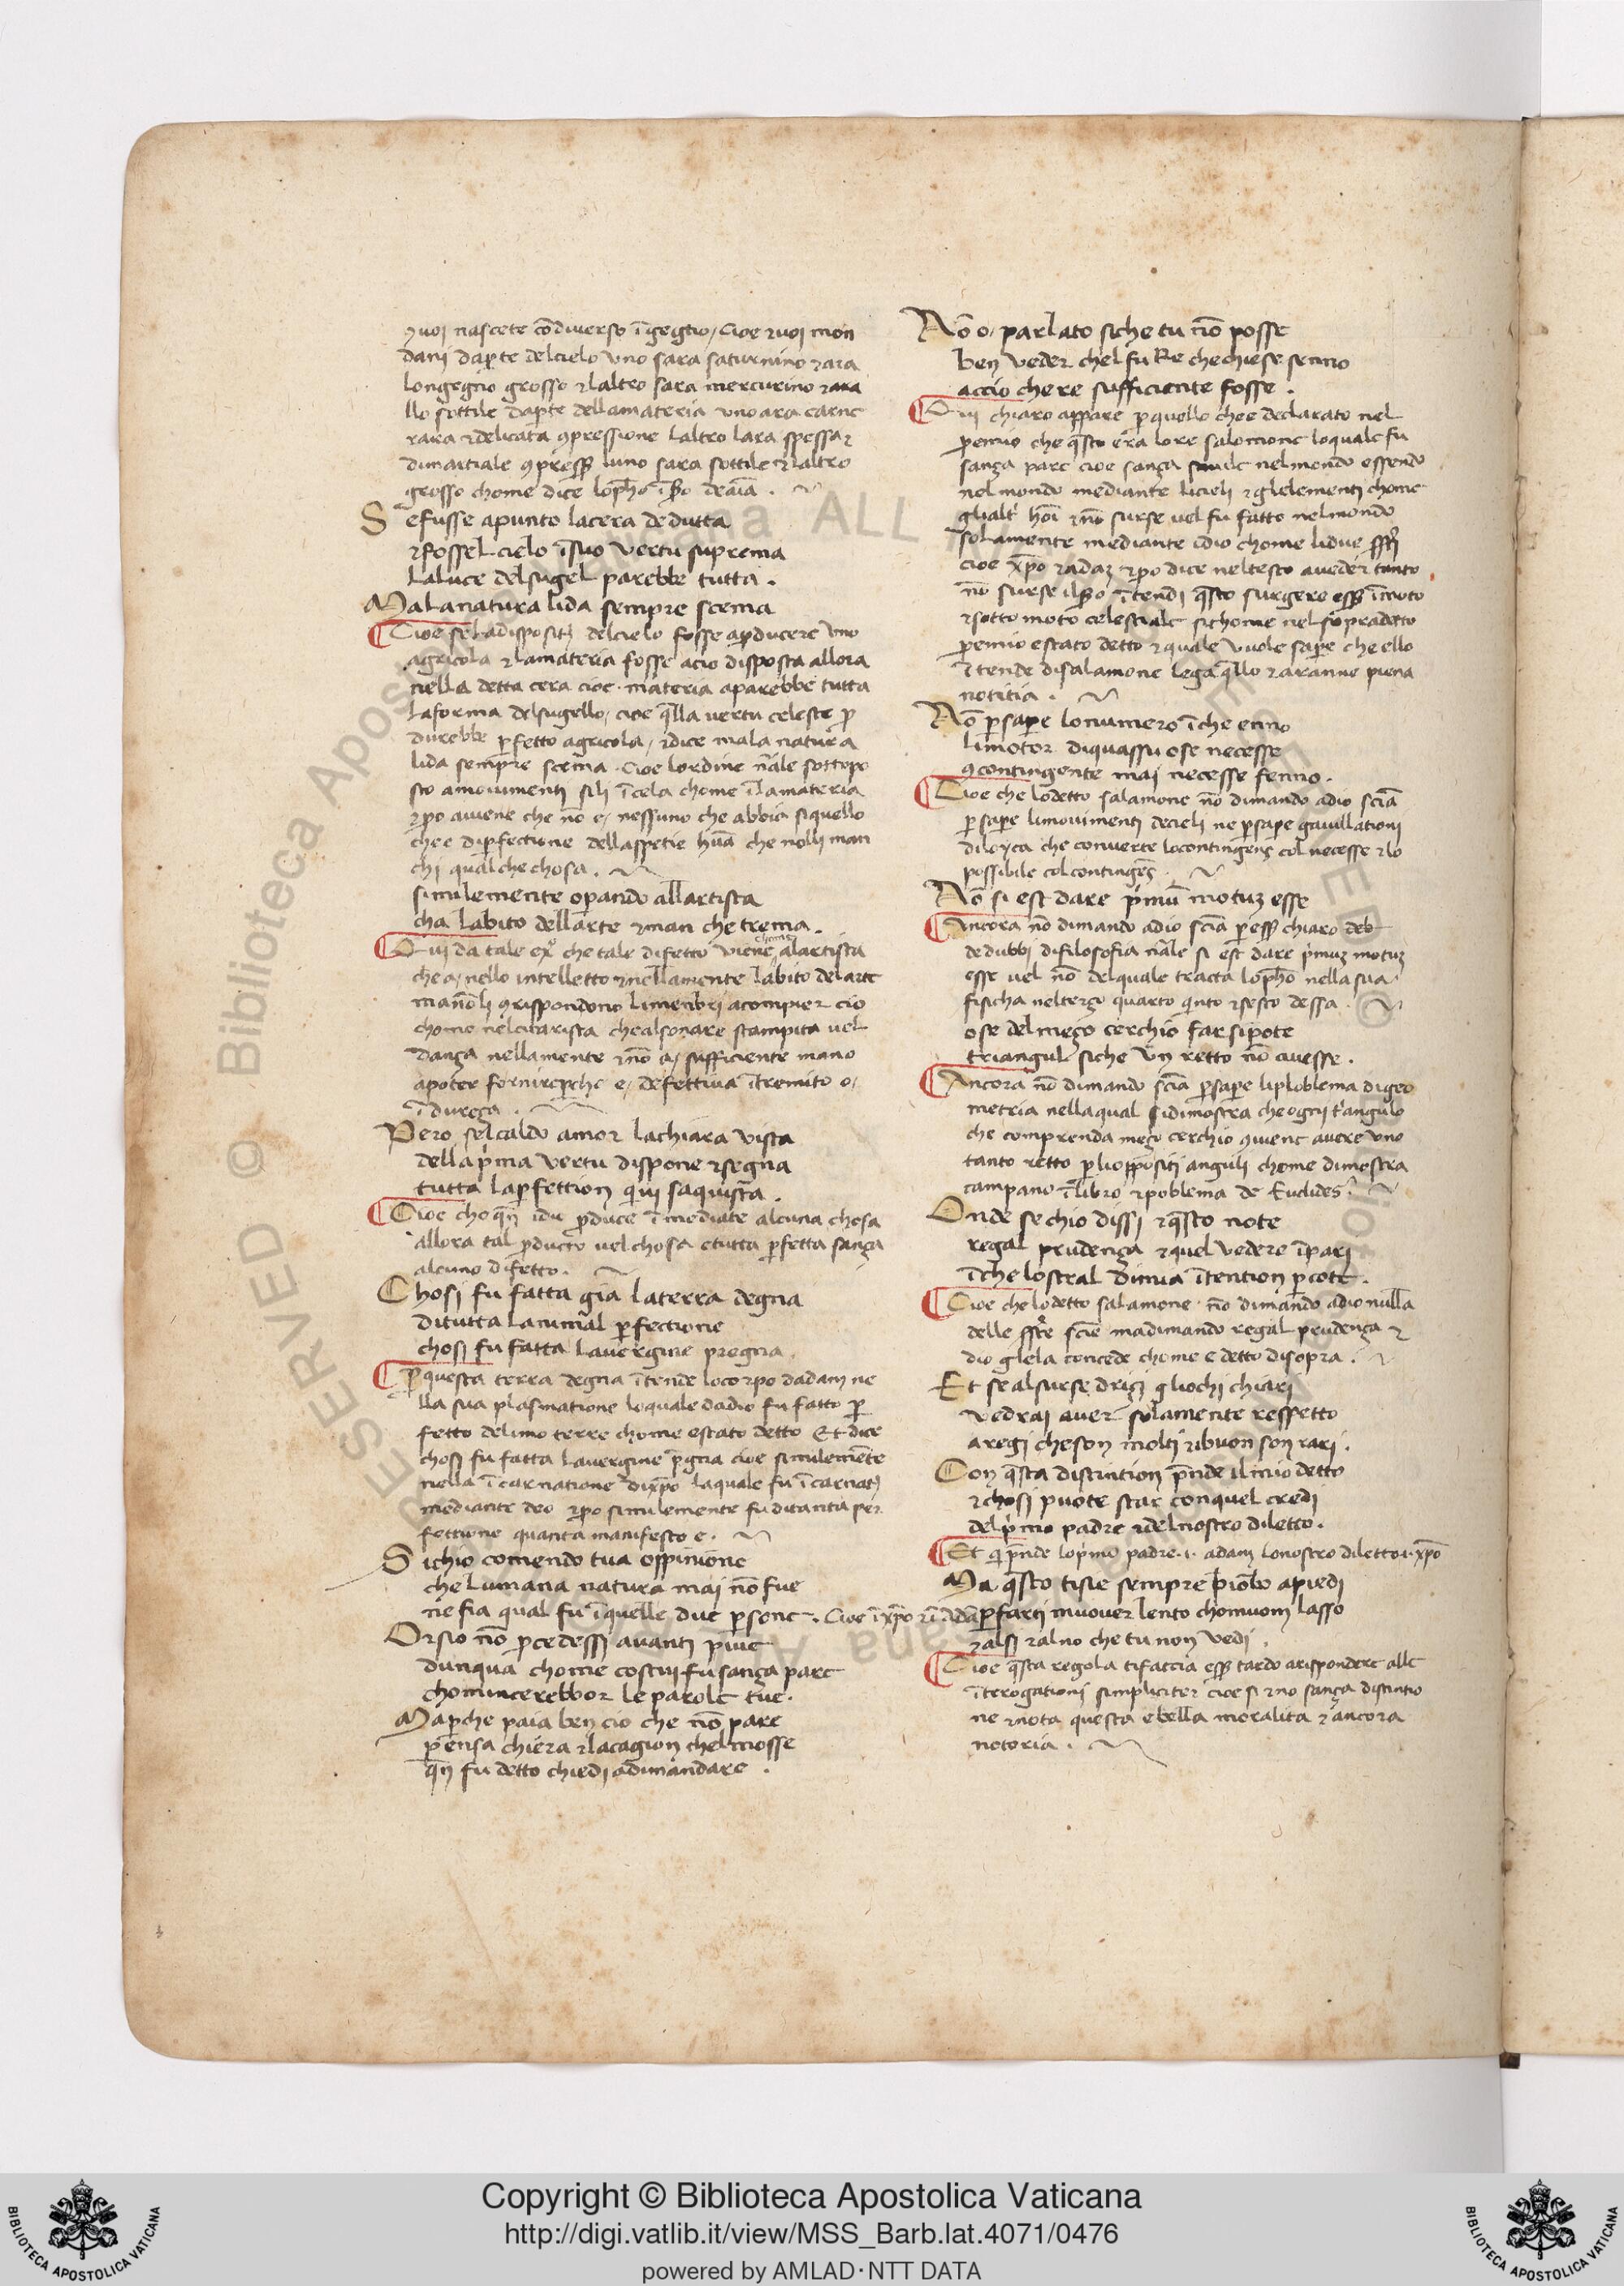 ⁊voi nascete cōdiverso īgegnio, Cioe ⁊voi mon
dani daꝑte delcielo vno sara saturnino ⁊ara
longegnio grosso ⁊laltro sara mercurino ⁊ara
llo sottile daꝑte dellamateria vno ara carne
rara ⁊delicata ꝯpressione laltro lara spessa ⁊
dimartiale ꝯpress luno sara sottile ⁊laltro
grosso chome dice lopħo deaīa .
Sefusse apunto lacera dedutta
⁊fossel cielo īsuo vertu suprema
laluce delsugel parebbe tutta .
Malanatura lida sempre scema
Cioe seladispositi delcielo fosse aꝓducere vno
agricola ⁊lamateria fosse acio disposta allora
nella detta cera cioe materia aparebbe tutta
laforma delsugello, cioe qlla vertu celeste ꝓ
durebbe ꝑfetto agricola, ⁊dice mala natura
lida sempre scema . Cioe lordine nāle sottopo
sto amovimenti sili īcela chome īlamateria
⁊ꝑo aviene che nō e, nessuno che abbia siquello
che e diꝑfectione dellaspetie hūa che nolli man
chi qualche chosa .
similemente oꝑando allartista
cha labito dellarte ⁊man che trema .
Qui da tale exº che tale difetto viene chome alartista
che a, nello intelletto ⁊nellamente labito delarte
manōli ꝯrispondono limenbri acompier cio
chomo nelcitarista chealsonare stampita vel
danza nellamente ⁊nō a, sufficiente mano
apoter fornireꝑche e, defettiva ītremito o,
īdureza .
Pero selcaldo amor lachiara vista
della pⁱma vertu dispone ⁊segna
tutta laꝑfettion qⁱvi saquista .
Cioe che qn̄ idio ꝓduce īmediate alcuna chosa
allora tal ꝓducto vel chosa etutta ꝑfetta sanza
alcuno difetto .
Chosi fu fatta gia laterra degna
ditutta lanimal ꝑfectione
chosi fu fatta lavergine pregna .
ꝑ questa terra degna ītende locorpo dadam ne
lla sua plasmatione loquale dadio fu fatto ꝑ
fetto delimo terre chome estato detto Et dice
chosi fu fatta lavergine pgna cioe similemēte
nella īcarnatione dixp̄o laquale fu īcarnati
mediante deo ⁊ꝑo similemente fu ditanta per
fettione quanta manifesto e .
Sichio comendo tua oppinione
che lumana natura mai nō fue
ne fia qual fu īquelle due ꝑsone . Cioe īxp̄o ⁊ī adā
Orsio nō ꝓcedessi avanti piue
dunqua chome costui fu sanza pare
chomincerebbor le parole tue .
Maꝑche paia ben cio che nō pare
pensa chiera ⁊lacagion chelmosse
qn̄ fu detto chiedi adimandare .
Nō o, parlato siche tu nō posse
ben veder chel fu Re che chiese senno
accio che re sufficiente fosse .
Qui chiaro appare ꝑ quello che e declarato nel
ꝓemio che qsto era lore salomone loquale fu
sanza pare cioe sanza simile nelmondo essendo
nelmondo mediante licieli ⁊glelementi chome
glialtⁱ hoī ⁊nō surse vel fu fatto nelmondo
solamente mediante idio chome lidue
cioe xp̄o ⁊adaz ⁊ꝑo dice neltesto aveder tanto
nō surse ītendi qsto surgere īmoto
⁊sotto moto celestiale sichome nel sopradetto
ꝓemio estato detto ⁊quale vuole saꝑe che ello
ītende disalamone lega qllo ⁊aranne piena
notitia .
Nō ꝑsaꝑe lonumero īche enno
limotor diquassu ose necesse
ꝯcontingente mai necesse fenno .
Cioe che lodetto salamone nō dimando adio sciā
ꝑsaꝑe limovimenti decieli ne ꝑsaꝑe gavillationi
diloyca che converte locontingens col necesse ⁊lo
possibile col contingēs .
Nō si est dare pⁱmū motuz esse
Ancora nō dimando adio sciā ꝑ chiaro deb
dedubbi difilosofia nāle si est dare pⁱmuz motuz
esse vel nō delquale tracta lopħo nella sua
fisicha nelterzo quarto qⁱnto ⁊sesto dessa .
ose delmezo cerchio far sipote
triangul siche vn retto nō avesse .
Ancora nō dimando sciā ꝑsaꝑe liploblema digeo
metria nellaqual sidimostra che ogni tⁱangulo
che comprenda mezo cerchio ꝯviene avere vno
tanto retto ꝑ lioppositi anguli chome dimostra
campano īlibro ⁊poblema de Euclides .
Onde se chio dissi ⁊qsto note
regal prudenza ⁊quel vedere īpari
īche lostral dimia ītention ꝑcote .
Cioe che lodetto salamone nō dimando adio nulla
delle sciē madimando regal prudenza ⁊
dio glela concede chome e detto disopra .
Et sealsurse drizi gliochi chiari
vedrai aver solamente respetto
aregi cheson molti ⁊ibuon son rari .
Con qsta distintion pnde ilmio detto
⁊chosi puote star conquel credi
delpⁱmo padre ⁊delnostro diletto .
Et qⁱ pnde lopⁱmo padre .i. adam lonostro diletto .i. xp̄o
Ma qsto tisie sempre piōbo apiedi
ꝑ farti muover lento chomuom lasso
⁊alsi ⁊alno che tu non vedi .
Cioe qsta regola tifaccia tardo arispondere alle
īterogationi simpliciter cioe si ⁊no sanza distintio
ne ⁊nota questa ebella moralita ⁊ancora
notoria .
Copyright © Biblioteca Apostolica Vaticana
http://digi.vatlib.it/view/MSS_Barb.lat.4071/0476
powered by AMLAD·NTT DATA
BIBLIOTECA APOSTOLICA VATICANA
BIBLIOTECA APOSTOLICA VATICANA